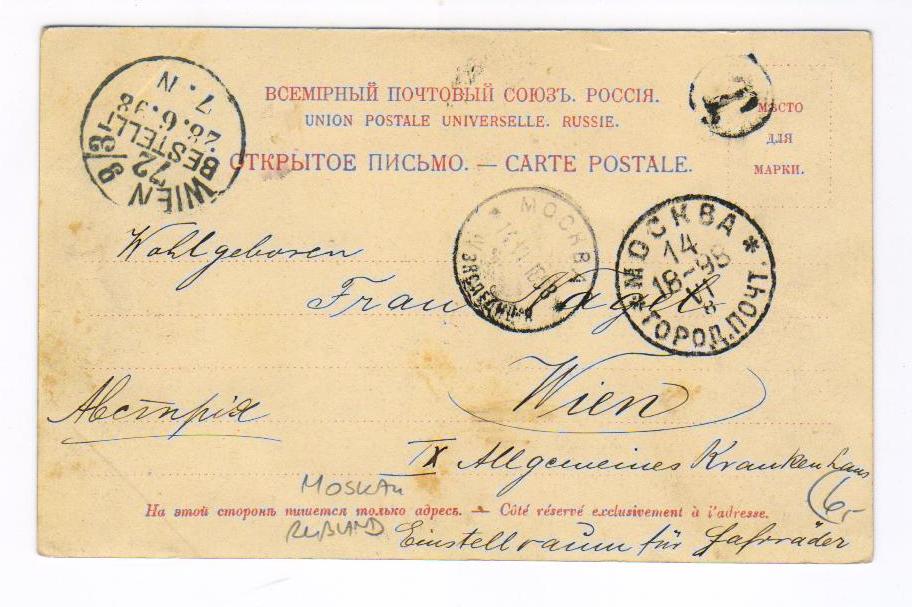 ВСЕМІРНЫЙ ПОЧТОВЫЙ СОЮЗЪ. РОССІЯ.
UNION POSTALE UNIVERSELLE. RUSSIE.
ОТКРЫТОЕ ПИСЬМО. — CARTE POSTALE.
МѢСТО
ДЛЯ
МАРКИ.
T
WIEN 9/3
72
BESTELLT
28.6.98
7. N
МОСКВА
МОСКВА
14
18-98
VI
8
ГОРОД. ПОЧТ.
Wohlgeboren
Frau
Wien
Австрія
IX Allgemeines Krankenhaus
MOSKAU
6,-
На этой сторонѣ пишется только адресъ. — Côté réservé exclusivement à l'adresse.
RUßLAND
Einstellraum für Fahrräder